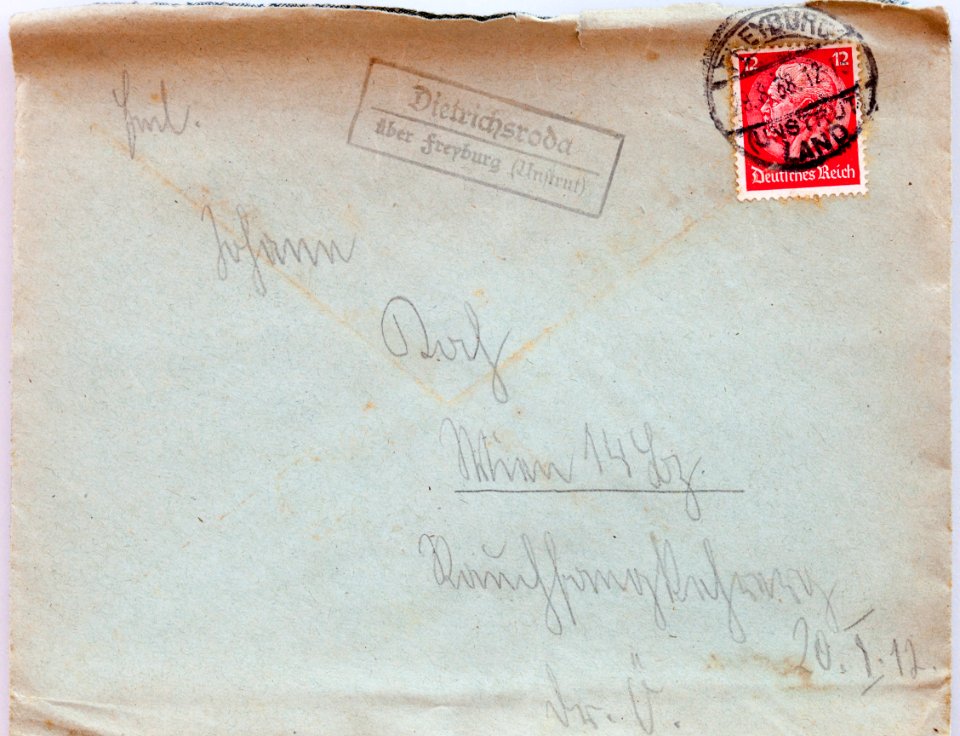 Dietrichsroda
über Freyburg (Unstrut)
FREYBURG
8.38.12
UNSTRUT
LAND
12 12
Deutsches Reich
Johann
Koch
Wien 14 Bz.
Rauchfangkehrerg
20. I. 12.
D.-Ö.